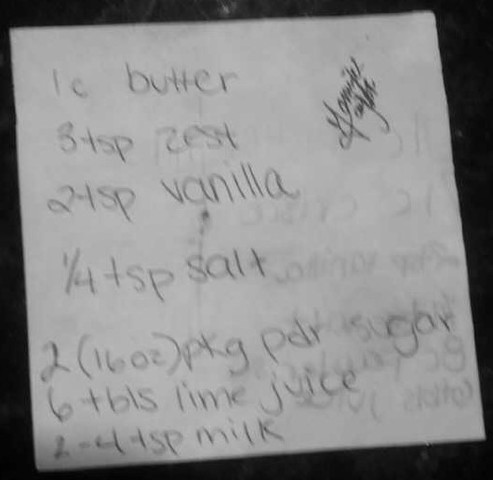 1c butter
3 tsp zest
2 tsp vanilla
1/4 tsp salt
2 (16oz) pkg pdr sugar
6 tbls lime juice
2-4 tsp milk